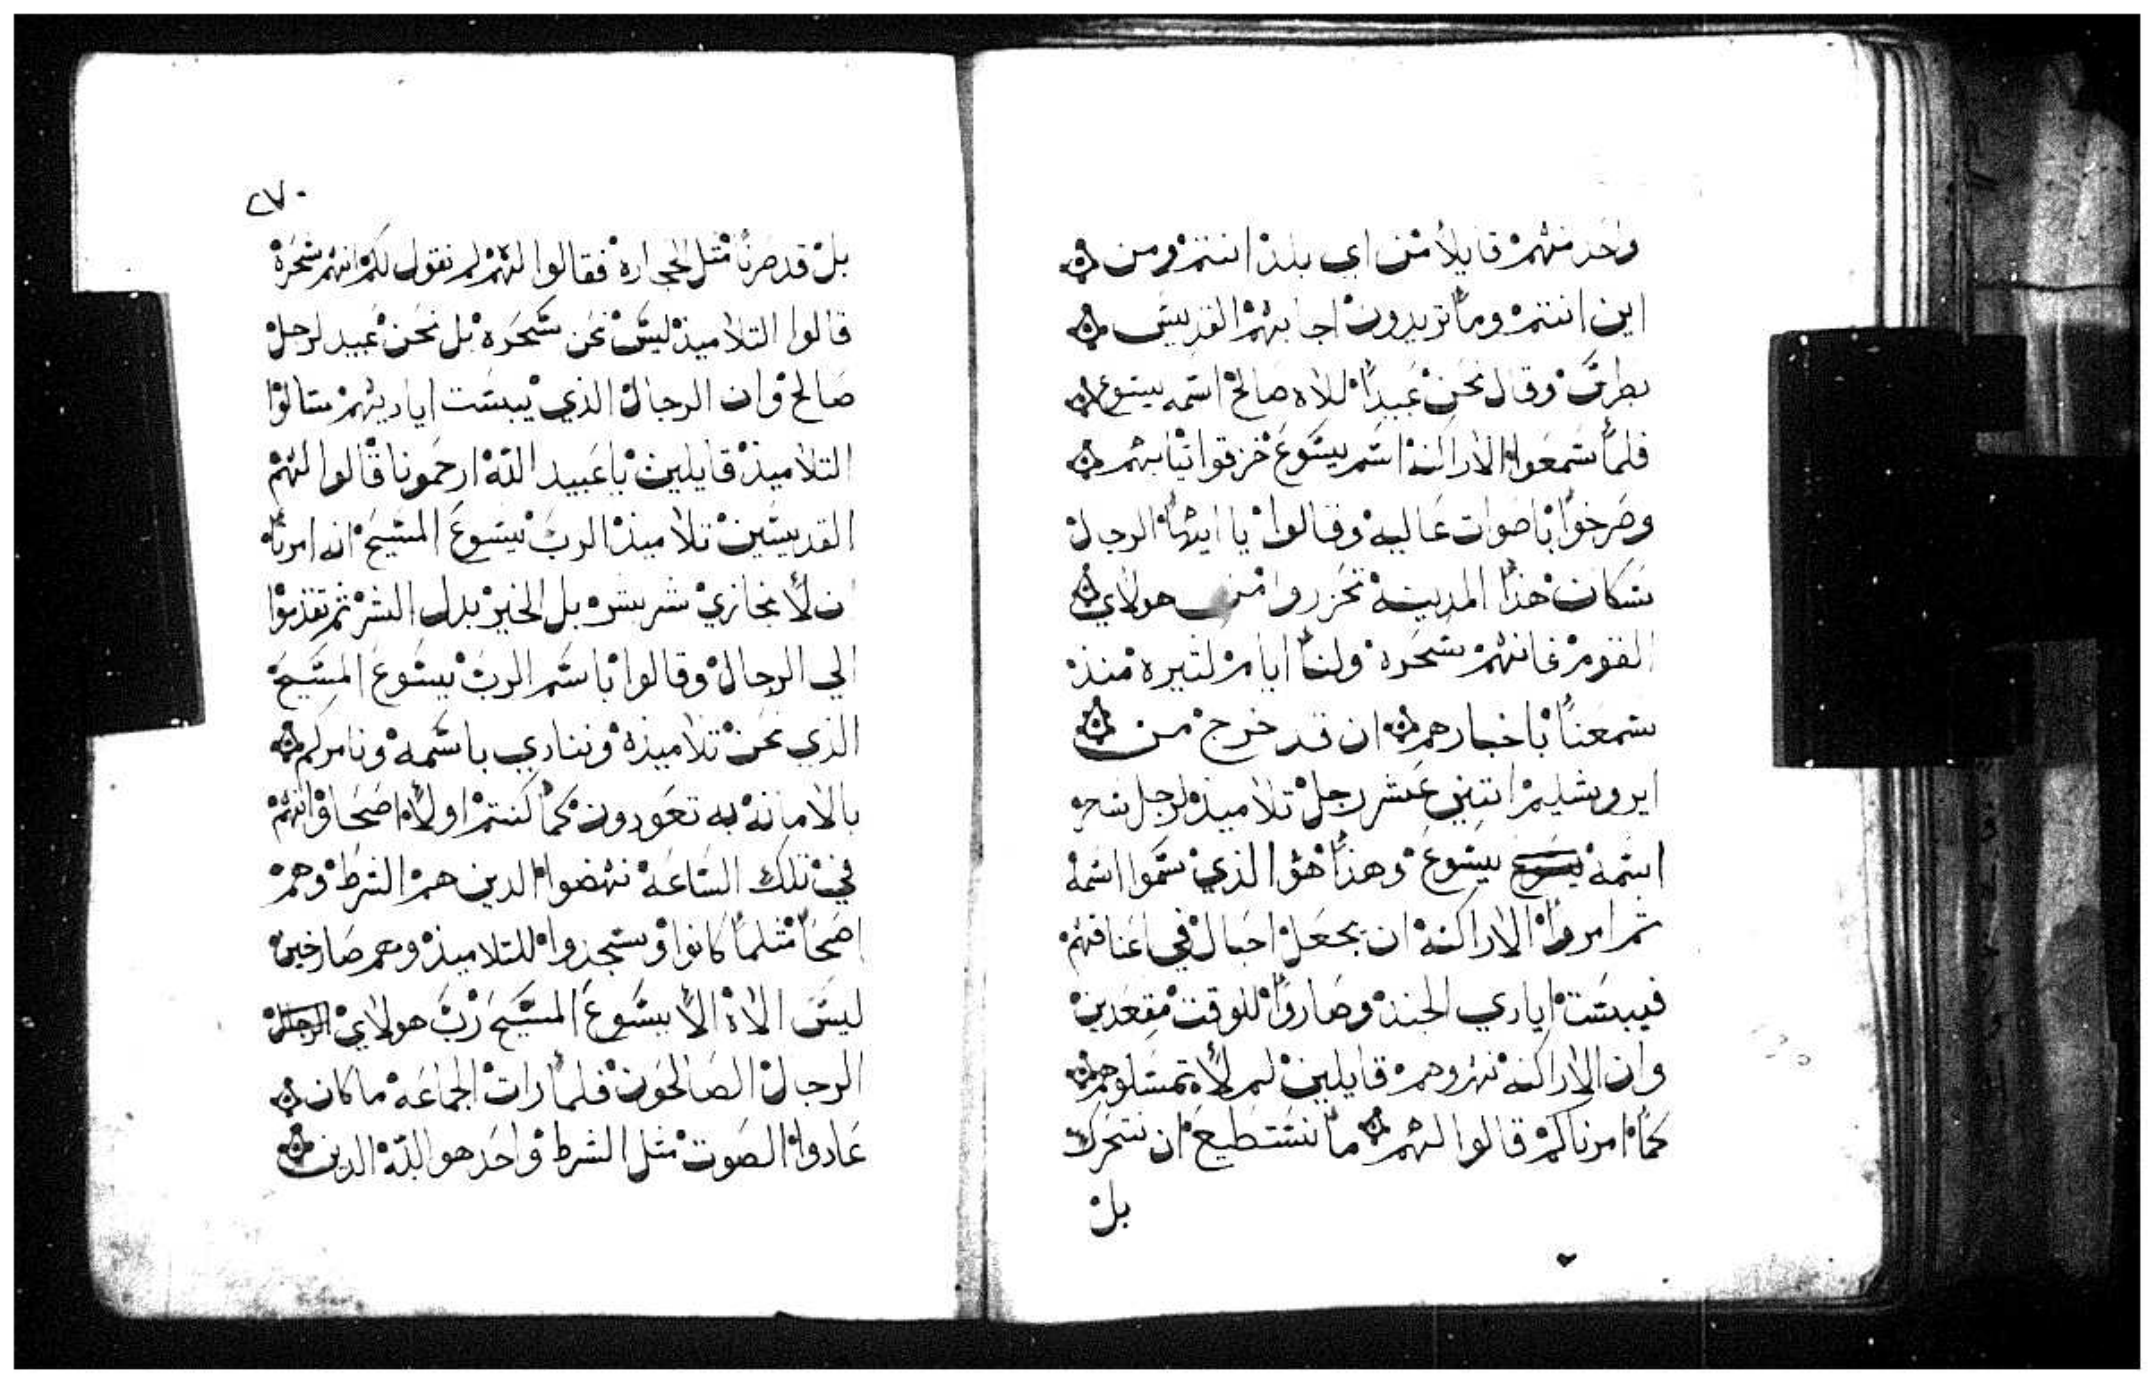 واحد منهم قايلا من اي بلد انتم ومن
اين انتم وما تريدون اجابهم القديس
بطرس وقال نحن عبيدا للاه صالح اسمه يسوع
فلما سمعوا الاراكنه اسم يسوع خزقوا تيابهم
وصرخوا باصوات عاليه وقالوا يا ايها الرجال
سكان هذا المدينه تحزروا من هولاي
القوم فانهم سحره ولنا ايام كتيره منذ
سمعنا باخبارهم ان قد خرج من
ايروشليم اتنين عشر رجل تلاميذ لرجل ساحر
اسمه يسوع يسوع وهذا هوا الذي سموا اسمه
ثم امروا الاراكنه ان يجعل احبال في اعناقهم
فيبست ايادي الجند وصاروا للوقت مقعدين
وان الاراكنه نهروهم قايلين لم لاه تمسلوهم
كما امرناكم قالوا لهم ما نستطيع ان نتحرك
بل
٢٧٠
بل قد صرنا مثل الحجاره فقالوا لهم لم نقول لكم انهم سحره
قالوا التلاميذ ليس نحن سحره بل نحن عبيد لرجل
صالح وان الرجال الذي يبست اياديهم سالوا
التلاميذ قايلين يا عبيد الله ارحمونا قالوا لهم
القديسين تلاميذ الرب يسوع المسيح انه امرنا
ان لا نجازي شر بشر بل الخير بدل الشر ثم تقدموا
الي الرجال وقالوا باسم الرب يسوع المسيح
الذي نحن تلاميذه وننادي باسمه ونامركم
بالامانه به تعودون كما كنتم اولاه اصحا وانهم
في تلك الساعه نهضوا الدين هم الشرط وهم
اصحا مثلما كانوا وسجدوا للتلاميذ وهم صارخين
ليس الاه الا يسوع المسيح رب هولاي الرجال
الرجال الصالحون فلما رات الجماعه ما كان
عادوا الصوت مثل الشرط واحد هو الله الدين